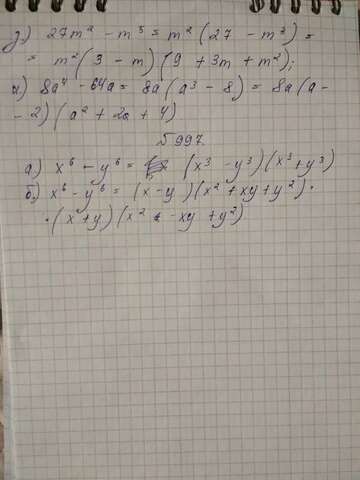 д) 27m² - m⁵ = m² (27 - m³) =
= m² (3 - m) (9 + 3m + m²);
и) 8a⁴ - 64a = 8a (a³ - 8) = 8a (a -
- 2) (a² + 2a + 4)
№ 997.
а) x⁶ - y⁶ = (x³ - y³) (x³ + y³)
б) x⁶ - y⁶ = (x - y) (x² + xy + y²) ·
· (x + y) (x² - xy + y²)